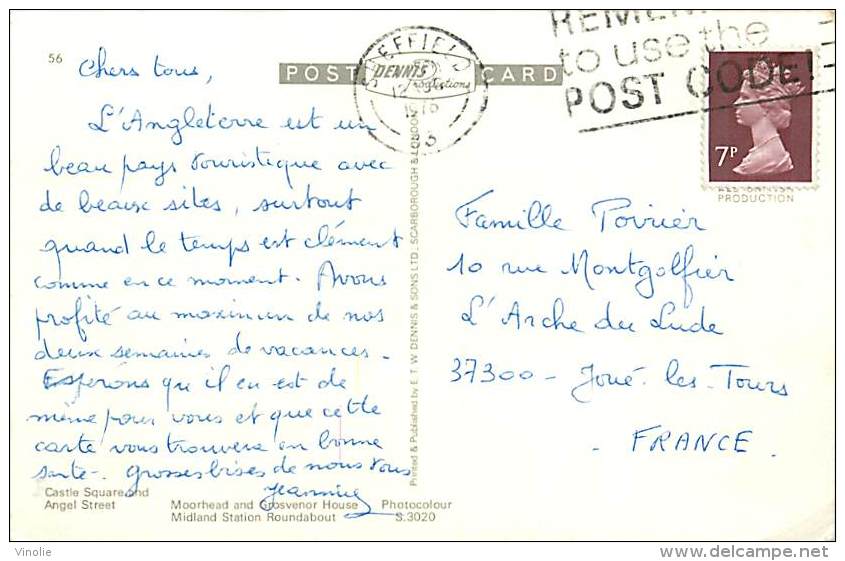 56
POST CARD
SHEFFIELD
DENNIS
Productions
REMEM
to use the
POST CODE!
7P
PRODUCTION
Chers tous,
L'Angleterre est un
beau pays touristique avec
de beaux sites, surtout
quand le temps est clément
comme en ce moment. Avons
profité au maximum de nos
deux semaines de vacances.
Espérons qu'il en est de
même pour vous et que cette
carte vous trouvera en bonne
santé. Grosses bises de nous tous
Jeannine
Famille Poirier
10 rue Montgolfier
L'Arche du Lude
37300 - Joué-les-Tours
- FRANCE.
Printed & Published by E. T. W. DENNIS & SONS LTD., SCARBOROUGH & LONDON
Castle Square and
Angel Street
Moorhead and Grosvenor House
Midland Station Roundabout
Photocolour
S.3020
Vinolie
©delcampe.net